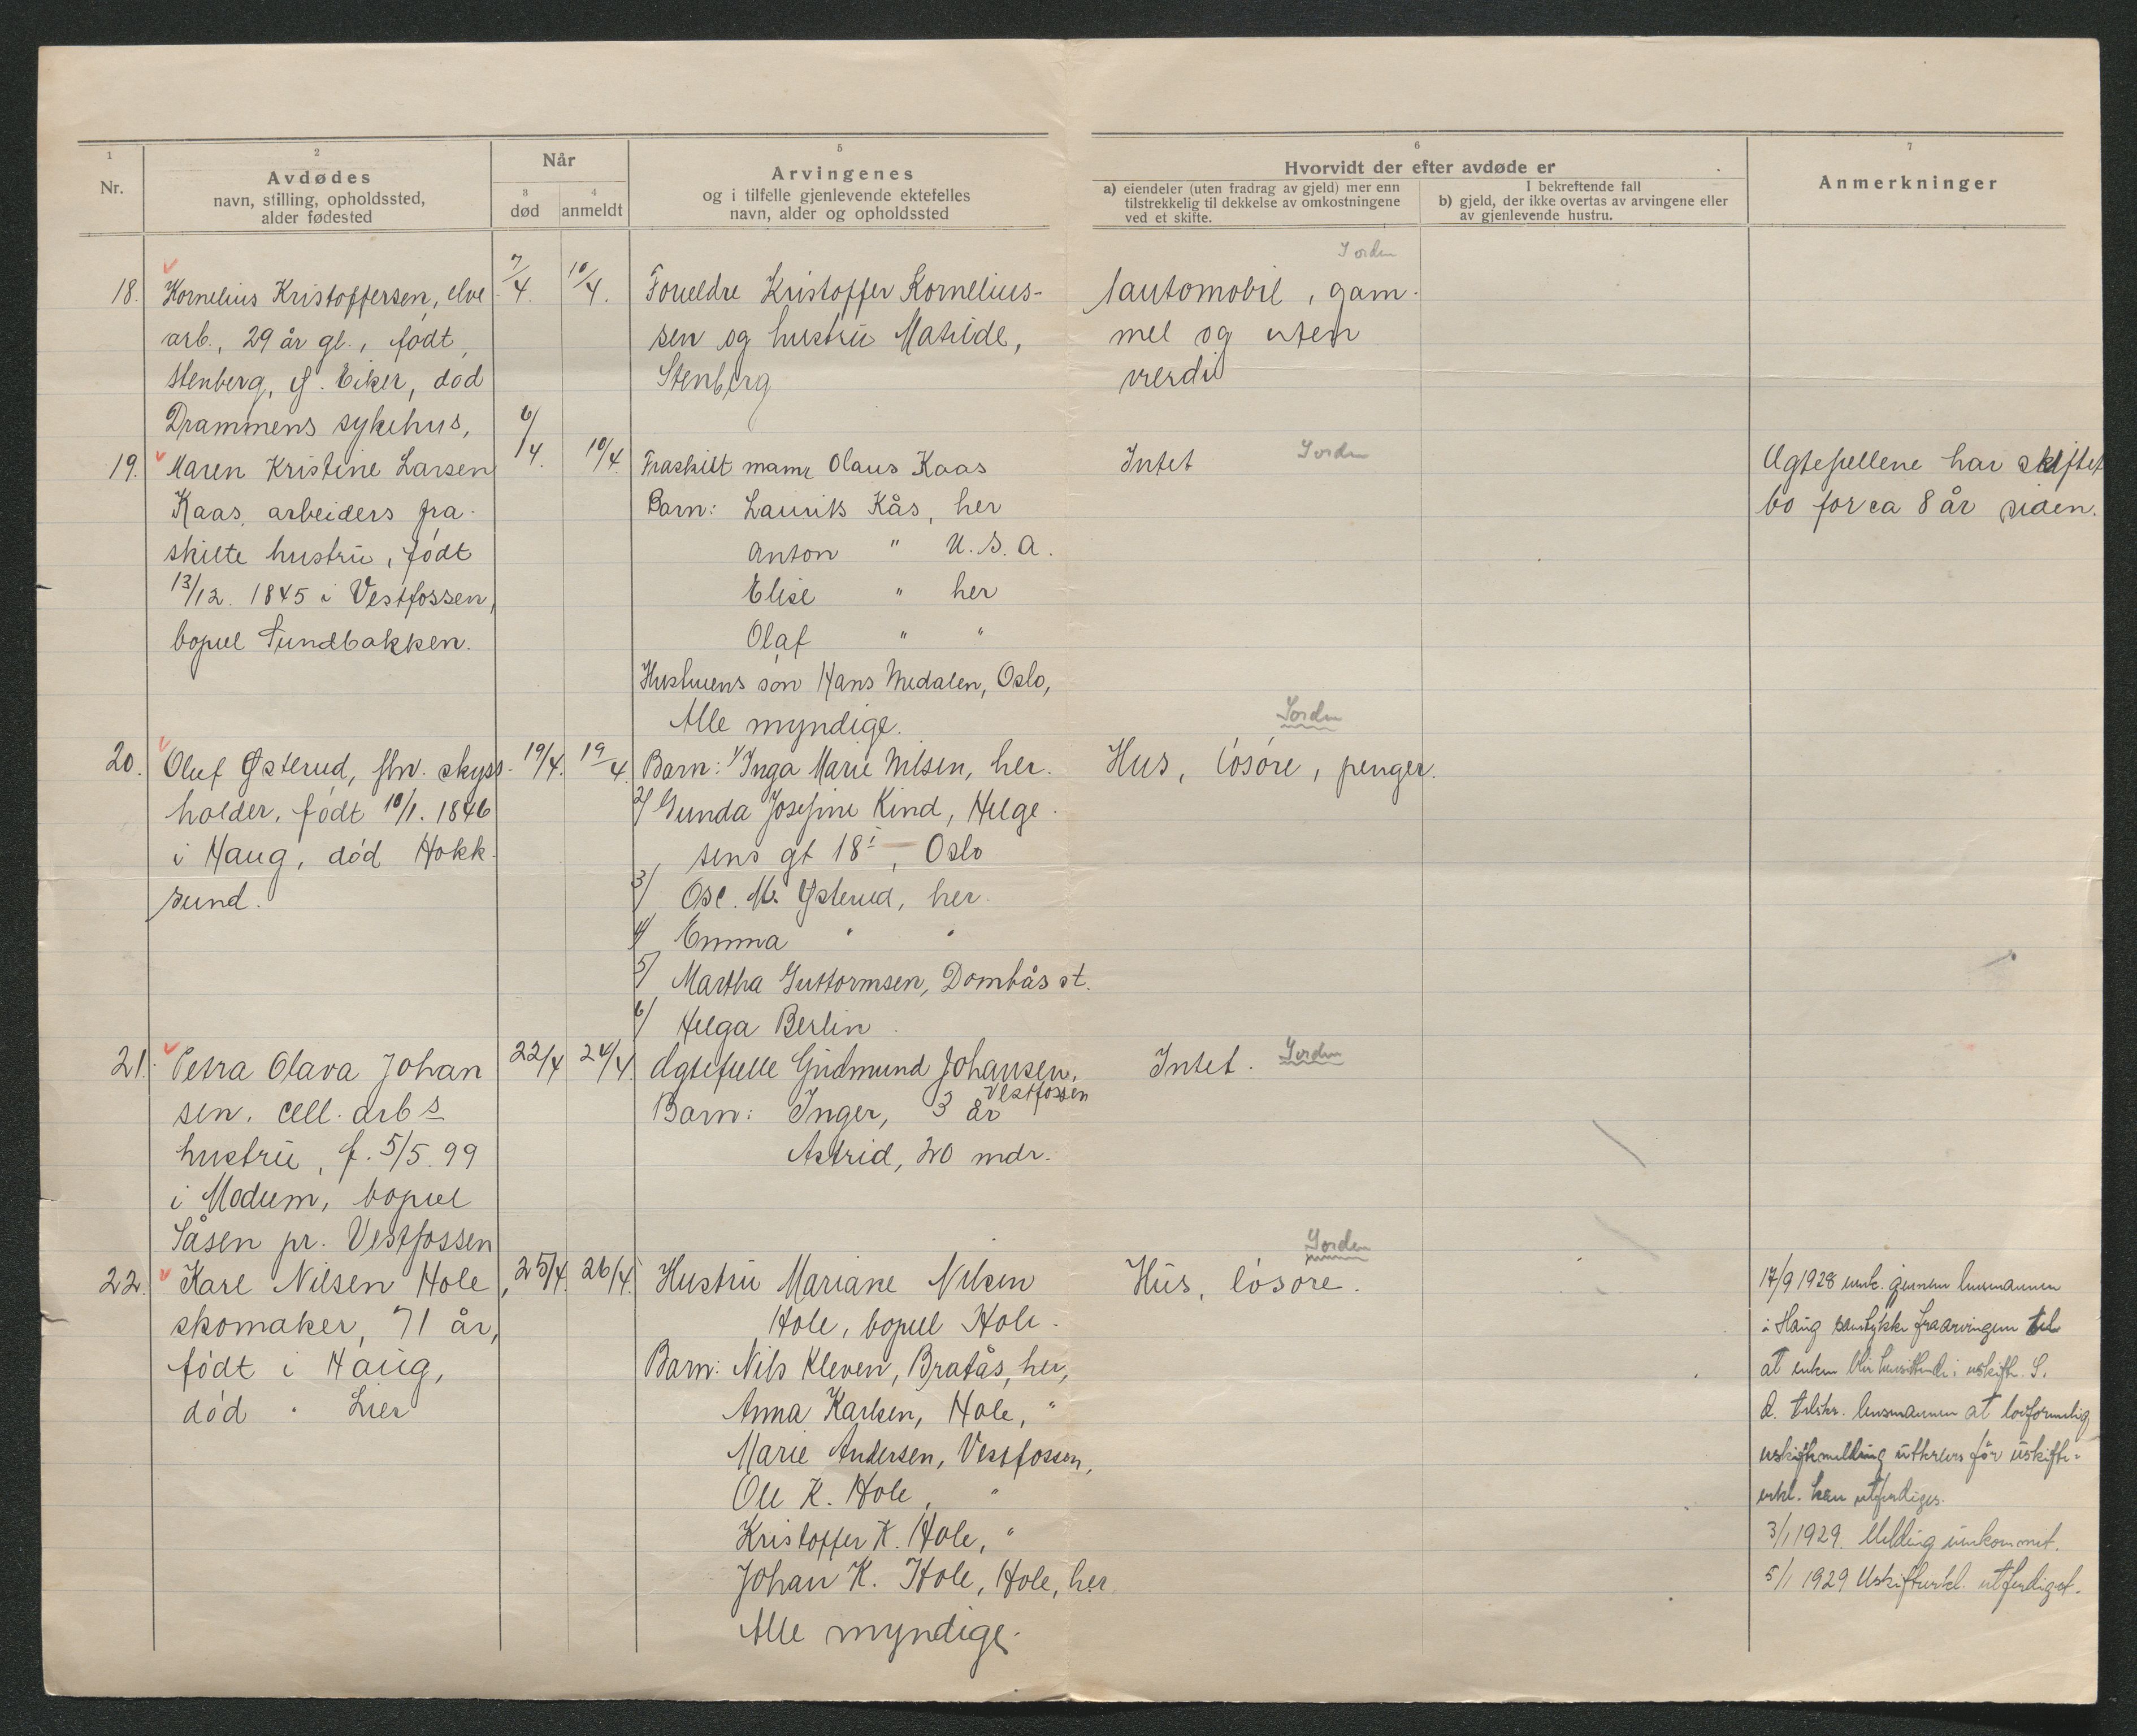 1
Nr.
2
Avdødes
navn, stilling, opholdssted,
alder fødested
Når
3
død
4
anmeldt
5
Arvingenes
og i tilfelle gjenlevende ektefelles
navn, alder og opholdssted
6
Hvorvidt der efter avdøde er
a) eiendeler (uten fradrag av gjeld) mer enn
tilstrekkelig til dekkelse av omkostningene
ved et skifte.
I bekreftende fall
b) gjeld, der ikke overtas av arvingene eller
av gjenlevende hustru.
7
Anmerkninger
18.
Kornelius Kristoffersen, elve
arb., 29 år gl., født
Stenberg, Ø. Eiker, død
Drammens sykehus,
7/4.
10/4.
Foreldre Kristoffer Kornelius-
sen og hustru Matilde,
Stenberg
Jorden
1 automobil, gam-
mel og uten
verdi
19.
Maren Kristine Larsen
Kaas, arbeiders fra-
skilte hustru, født
13/12. 1845 i Vestfossen,
bopel Sundbakken.
6/4.
10/4.
Fraskilt mann Olaus Kaas
Barn: Laurits Kås, her
Anton " U.S.A.
Elise " her
Olaf " "
Hustruens søn Hans Medalen, Oslo,
Alle myndige.
Intet
Jorden
Egtefellene har skiftet
bo for ca 8 år siden.
20.
Oluf Østerud, fhv. skyss-
holder, født 10/1. 1846
i Haug, død Hokk-
sund.
19/4.
19/4.
Barn: 1/ Inga Marie Nilsen, her.
2/ Gunda Josefine Kind, Helge-
sens gt 18 , Oslo
3/ Osc. M. Østerud, her.
4/ Emma " "
5/ Martha Guttormsen, Dombås st.
6/ Helga Berlin.
Jorden
Hus, løsøre, penger.
21.
Petra Olava Johan
sen, cell. arbs
hustru, f. 5/5. 99
i Modum, bopel
Såsen pr. Vestfossen
22/4
24/4.
Egtefelle Gudmund Johansen,
Vestfossen
Barn: Inger, 3 år
Astrid, 20 mdr.
Intet.
Jorden
22.
Karl Nilsen Hole,
skomaker, 71 år,
født i Haug,
død " Lier
25/4.
26/4.
Hustru Mariane Nilsen
Hole, bopel Hole.
Barn: Nils Kleven, Bratås, her,
Anna Karlsen, Hole, "
Marie Andersen, Vestfossen,
Ole K. Hole, "
Kristoffer K. Hole, "
Johan K. Hole, Hole, her
Alle myndige.
Jorden
Hus, løsøre.
17/9 1928 innk. gjennem lensmannen
i Haug samtykke fra arvingene til
at enken blir hensittende i uskifte. S.
d. tilskr. lensmannen at lovformelig
uskiftemelding utkreves før uskifte-
erkl. kan utferdiges.
3/1 1929. Melding innkommet.
5/1 1929 Uskifteerkl. utferdiget.